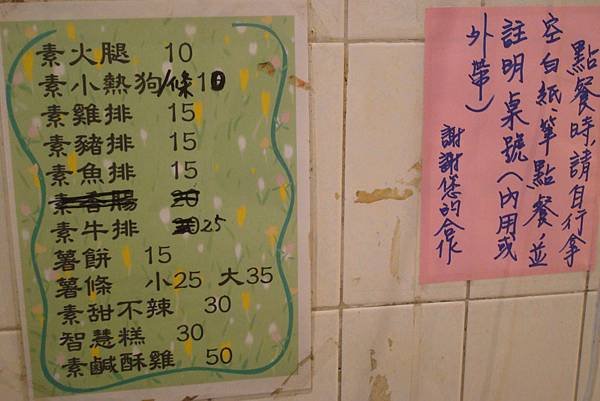 素火腿 10
素小熱狗/條10
素雞排 15
素豬排 15
素魚排 15
素香腸 20
素牛排 20 25
薯餅 15
薯條 小25 大35
素甜不辣 30
智慧糕 30
素鹹酥雞 50
點餐時,請自行拿
空白紙、筆點餐並
註明桌號(內用或
外帶)
謝謝您的合作